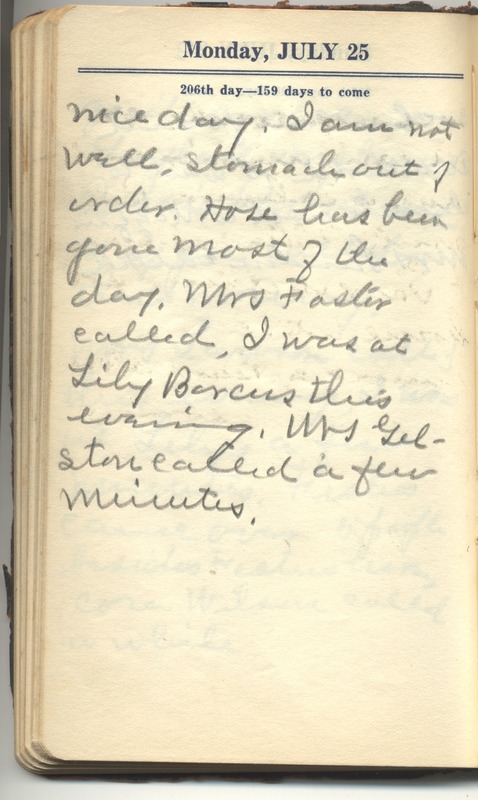 Monday, JULY 25
206th day—159 days to come
nice day. I am not
well, stomach out of
order. Hose has been
gone most of the
day. Mrs Foster
called, I was at
Lily Barcus this
evening. Mrs Gel-
ston called a few
minutes.